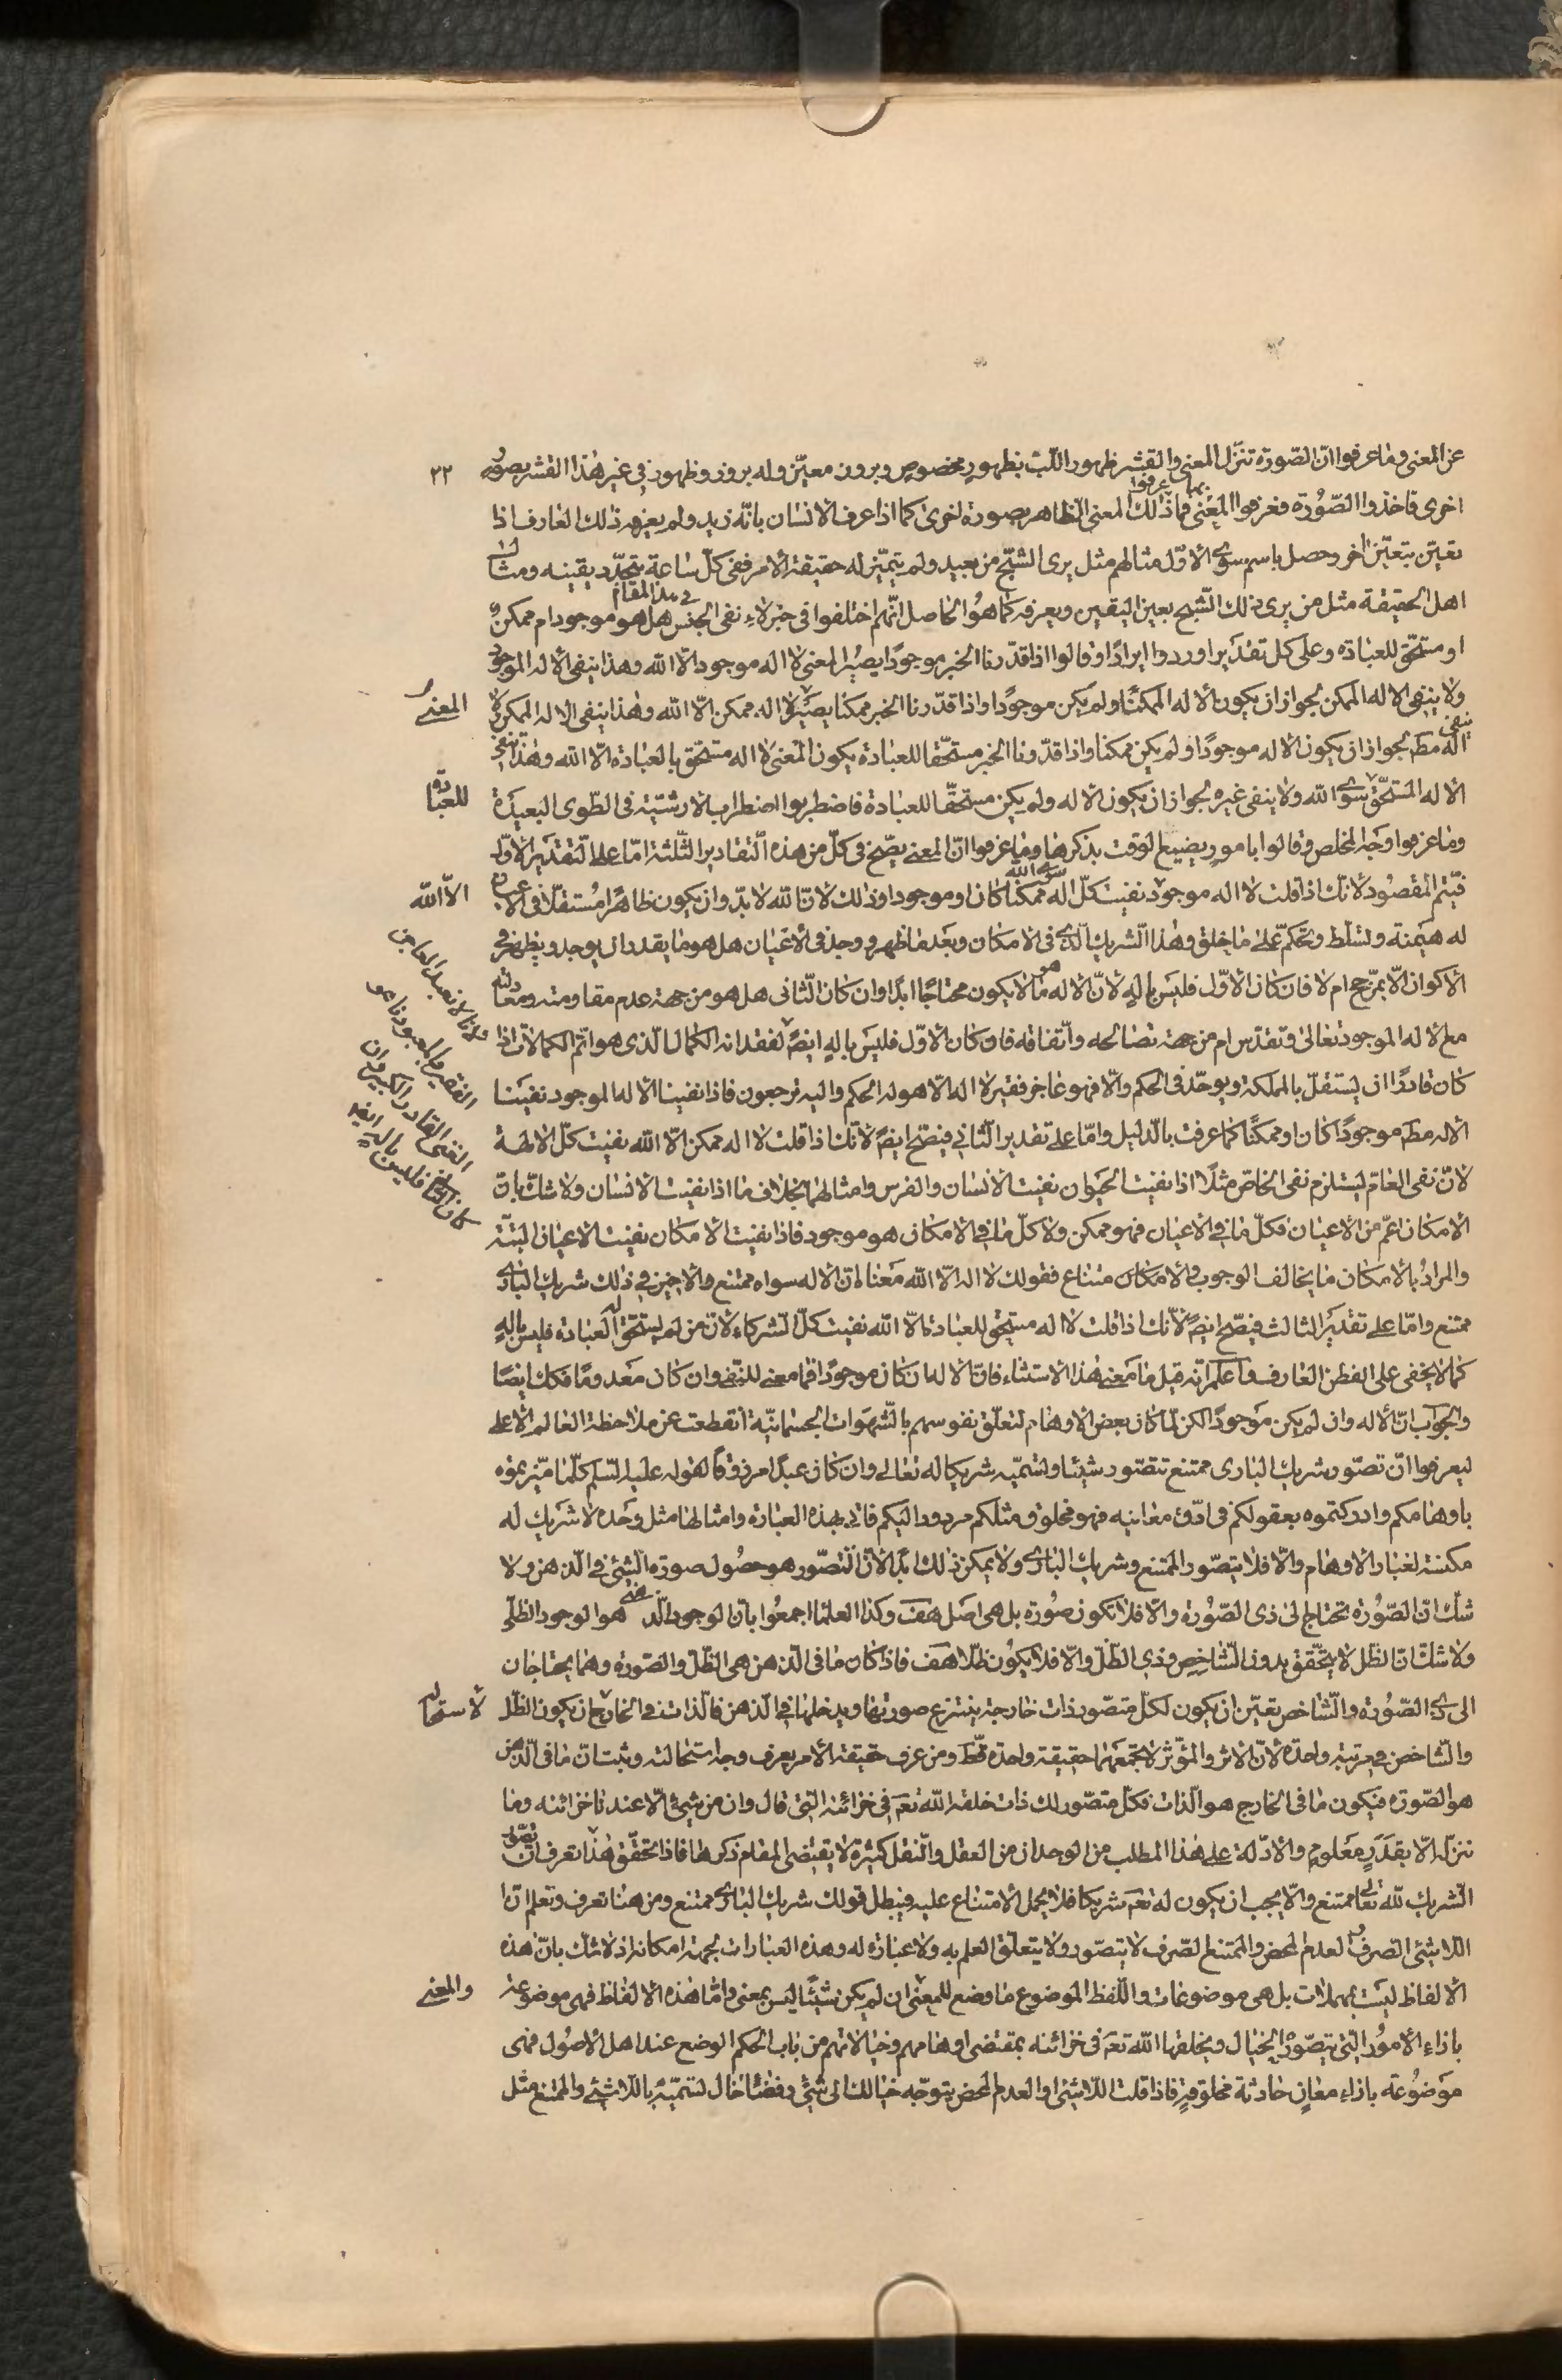 عن المعنى وما عرفوا انّ الصّورة تنزّل المعنى والقشر ظهور اللّب بظهور مخصوص وبروز معيّن وله بروز وظهور في غير هذا القشر بصورة
٣٢
اخرى فاخذوا الصّورة فعرفوا بها المعنى فاذا عرفوا ذلك المعنى الظاهر بصورة اخرى كما اذا عرف الانسان بانّه زيد ولم يعرفه ذلك العارف اذا
تعيّن بتعيّن اخر وحصل باسم سوى الاوّل مثالهم مثل يرى الشبح من بعيد ولم يتميّز له حقيقة الامر ففي كلّ ساعة يتجدّد يقينه ومثال
اهل الحقيقة مثل من يرى ذلك الشّبح بعين اليقين ويعرفه كما هو الحاصل انّهم اختلفوا في هذا المقام في خبر لاء نفى الجنس هل هو موجود ام ممكن
او مستحقّ للعبادة وعلى كل تقدير اوردوا ايرادا وقالوا اذا قدّرنا الخبر موجودًا يصير المعنى لا اله موجود الّا الله وهذا ينفى الاله الموجود
ولا ينفى الاله الممكن لجواز ان يكون الاله الممكنًا ولم يكن موجودًا واذا قدّرنا الخبر ممكنا يصير المعنى لا اله ممكن الّا الله وهذا ينفى الاله الممكن ولا ينفى
اله مط لجواز ان يكون الاله موجودًا ولم يكن ممكنا واذا قدّرنا الخبر مستحقّا للعبادة يكون المعنى لا اله مستحّق بالعبادة الّا الله وهذا ينفى
الاله المستحّق للعبادة سوى الله ولا ينفى غيره لجواز ان يكون الاله ولم يكن مستحقّا للعبادة فاضطربوا اضطراب الارشية في الطّوى البعيدة
وما عرفوا وجه المخلص وقالوا بامور يضيع الوقت بذكرها وما عرفوا انّ المعنى يصّح في كلّ من هذه التّقادير الثّلثة امّا على التّقدير الاوّل
فيتم المقصود لانّك اذا قلت لا اله موجود الّا الله نفيت كلّ اله سوى الله ممكنًا كان او موجودا وذلك لانّ الله لا بدّ وان يكون ظاهرًا مستقلّا في الا
له هيمنة وتسلّط وتحكّم على ما خلق وهذا الشّريك الّذي في الامكان وبعد ما ظهر ووجد في الاعيان هل هو ما يقدر ان يوجد ويظهر في
الاكوان الّا بمرّجح ام لا فان كان الاوّل فليس باله لانّ الاله هو ما لا يكون محتاجًا ابدًا وان كان الثّانى هل هو من جهة عدم مقاومته ومعادلته
مع الاله الموجود تعالى وتقدّس ام من جهة تصالحه واتّفاقه فان كان الاوّل فليس باله ايضًا لفقدانه الكمال الّذى هو اتّم الكمالات اذا
كان قادرًا ان يستقلّ بالمملكة ويوحّد في الحكم والّا فهو عاجز فقير لا اله الّا هو له الحكم واليه ترجعون فاذا نفينا الاله الموجود نفينا
الاله مط موجودًا كان او ممكنًا كما عرفت بالدّليل وامّا على تقدير الثّاني فيصّح ايضًا لانّك اذا قلت لا اله ممكن الّا الله نفيت كلّ الالهة
لانّ نفى العامّ يستلزم نفى الخاصّ مثلًا اذا نفيت الحيوان نفيت الانسان والفرس وامثالها بخلاف ما اذا نفيت الانسان ولا شك بانّ
الامكان اعمّ من الاعيان فكلّ ما في الاعيان فهو ممكن ولا كلّ ما في الامكان هو موجود فاذا نفيت الامكان نفيت الاعيان البتّة
والمراد بالامكان ما يخالف الوجوب والامتناع فقولك لا اله الّا الله معناه انّ الاله سواه ممتنع والاخير في ذلك شريك البارى
ممتنع وامّا على تقدير الثالث فيصّح ايضًا لانّك اذا قلت لا اله مستحق للعبادة الّا الله نفيت كلّ الشركاء لانّ من لم يستحق له العبادة فليس باله
كما لا يخفى على الفطن العارف واعلم انّه قيل ما معنى هذا الاستثناء فانّ الاله ان كان موجودًا فما معنى للنّفى وان كان معدومًا فكك ايضًا
والجواب انّ الاله وان لم يكن موجودًا لكن لمّا كان بعض الاوهام لتعلّق نفوسهم بالشّهوات الجسمانيّة انقطعت عن ملاحظة العالم الاعلى
ليعرفوا انّ تصّور شريك البارى ممتنع تتصّور شيئا وتسمّيه شريكا له تعالى وان كان عبدًا مرزوقًا لقوله عليه السّلم كلّما ميّزتموه
باوهامكم وادركتموه بعقولكم في ادّق معانيه فهو مخلوق مثلكم مردود اليكم فاتى بهذه العبارة وامثالها مثل وحده لا شريك له
مكنسة لغبار الاوهام والّا فلا يتصّور الممتنع وشريك البارى ولا يمكن ذلك ابدًا لانّ التّصّور هو حصول صورة الشّئ في الّذهن ولا
شك انّ الصّورة تحتاج الى ذى الصّورة والّا فلا تكون صورة بل هي اصل هف وكذا العلماء اجمعوا بانّ الوجود الذّهنى هو الوجود الظّلّى
ولا شك انّ الظل لا يتحّقق بدون الشّاخص وذى الظّل والّا فلا يكون ظلّا هف فاذا كان ما في الّذهن هى الظّل والصّورة وهما يحتاجان
الى ذى الصّورة والشّاخص تعيّن ان يكون لكلّ متصّور ذات خارجة ينتزع صورتها ويدخلها في الّذهن فالّذات في الخارج لاستحالة ان يكون الظّل
والشّاخص في مرتبة واحدة لانّ الاثر والمؤثر لا تجمعهما حقيقة واحدة قط ومن عرف حقيقة الامر يعرف وجه استحالته وثبت انّ ما في الّذهن
هو الصّورة فيكون ما في الخارج هو الّذات فكلّ متصّور لك ذات خلقه اللّه تعم في خزائنه الّتى قال وان من شئ الّا عندنا خزائنه وما
ننزله الّا بقدر معلوم والادّلة على هذا المطلب من الوجدان من العقل والنّقل كثيرة لا يقتضى المقام ذكرها فاذا تحقّق هذا تعرف انّ تصّور
الشّريك للّه تعالى ممتنع والّا يجب ان يكون له تعم شريكا فلا يحمل الامتناع عليه فيبطل قولك شريك البارى ممتنع ومن هنا تعرف وتعلم انّ
اللا شئى الصرف والعدم المحض والممتنع الصّرف لا يتصّور ولا يتعلّق العلم به ولا عبارة له وهذه العبارات لجهة امكانه اذ لا شك بانّ هذه
الالفاظ ليست بمهملات بل هى موضوعات واللّفظ الموضوع ما وضع للمعنى والمعنى ان لم يكن شيئًا ليس بمعنى وامّا هذه الالفاظ فهى موضوعة
بازاء الامور الّتى تتصّور بالخيال ويخلقها اللّه تعم في خزائنه بمقتضى اوهامهم وخيالاتهم من باب الحكم الوضع عند اهل الاصول فهى
موضوعة بازاء معان حادثة مخلوقة فاذا قلت اللّا شئى او العدم المحض يتوجّه خيالك الى شئ وفضاء خال تسمّيه باللّا شئ والممتنع مثل